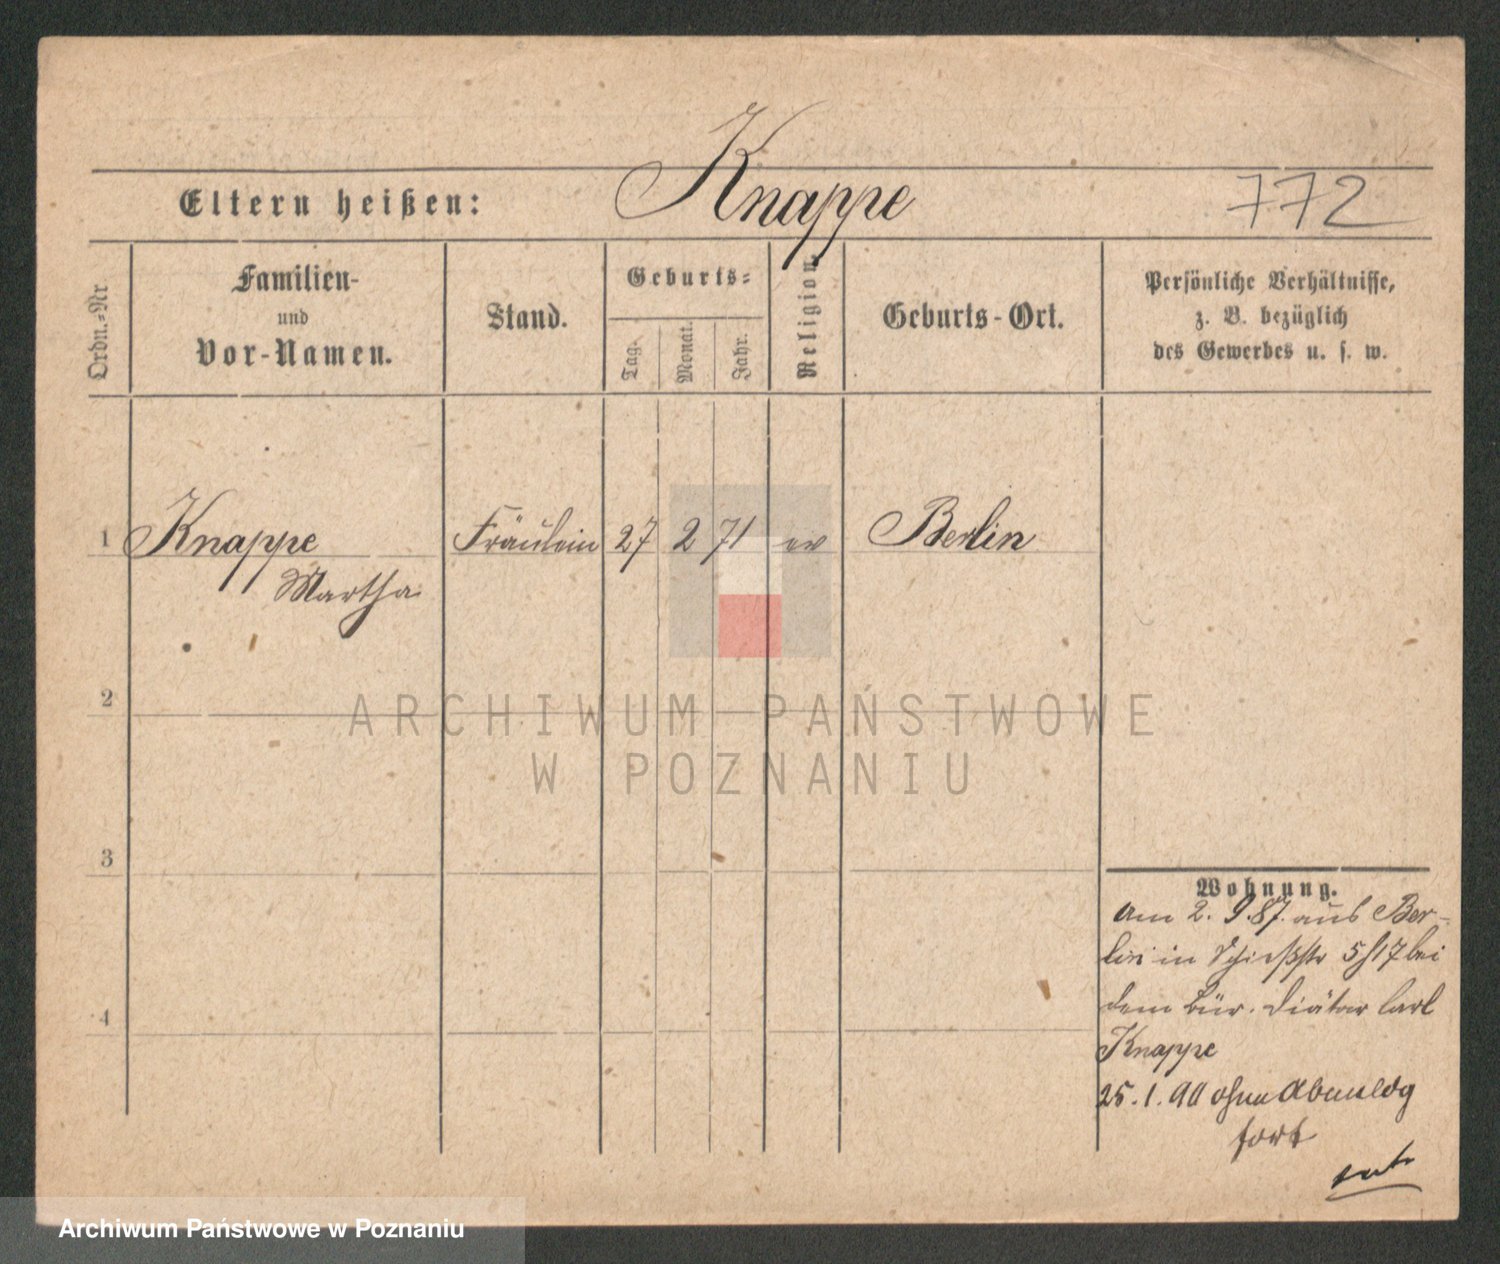 Eltern heißen: Knappe 772
Ordn.-Nr
Familien-
und
Vor-Namen.
Stand.
Geburts-
Tag.
Monat.
Jahr.
Religion.
Geburts-Ort.
Persönliche Verhältnisse,
z. B. bezüglich
des Gewerbes u. s. w.
1 Knappe Fräulein 27 2 71 ev Berlin
Martha
2
3
4
ARCHIWUM PAŃSTWOWE
W POZNANIU
Wohnung.
Am 2. 9.87. aus Ber-
lin in Schießstr 5 bei
dem Bür. Diätar Carl
Knappe
25.1.90 ohne Abmeldg
fort
Archiwum Państwowe w Poznaniu